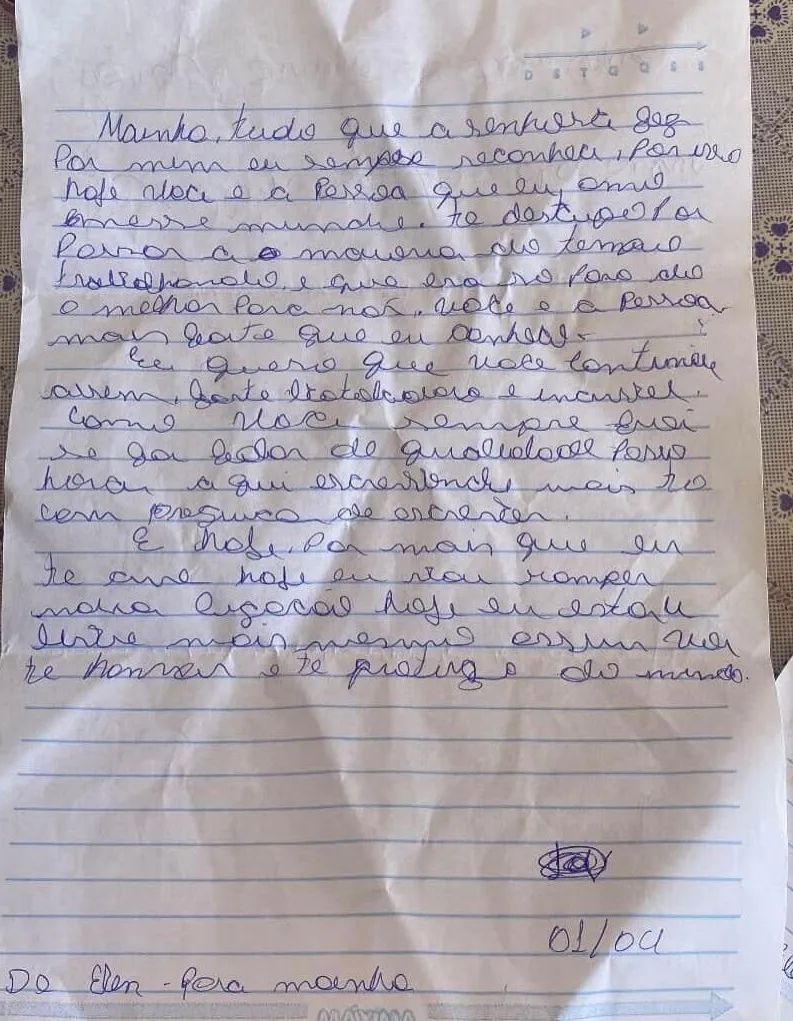 D S T Q Q S S
Mainha, tudo que a senhora fez
Por mim eu sempre reconheci, Por isso
hoje você e a Pessoa que eu amo
nesse mundo. te desculpo Por
Passar a maioria do tempo
trabalhando, e que era so Para da
o melhor Para nós. você e a Pessoa
mais forte que eu conheço.
Eu quero que você continue
assim, forte e incrivel.
Como você sempre foi
se fa falar de qualidade Passo
horas aqui escrevendo mais to
com preguiça de escrever.
E hoje, Por mais que eu
te ame hoje eu vou romper
nossa ligação hoje eu estou
livre mais mesmo assim vou
te honrar e te protejo do mundo.
01/04
Do Elen - Para mainha
MÁXIMA